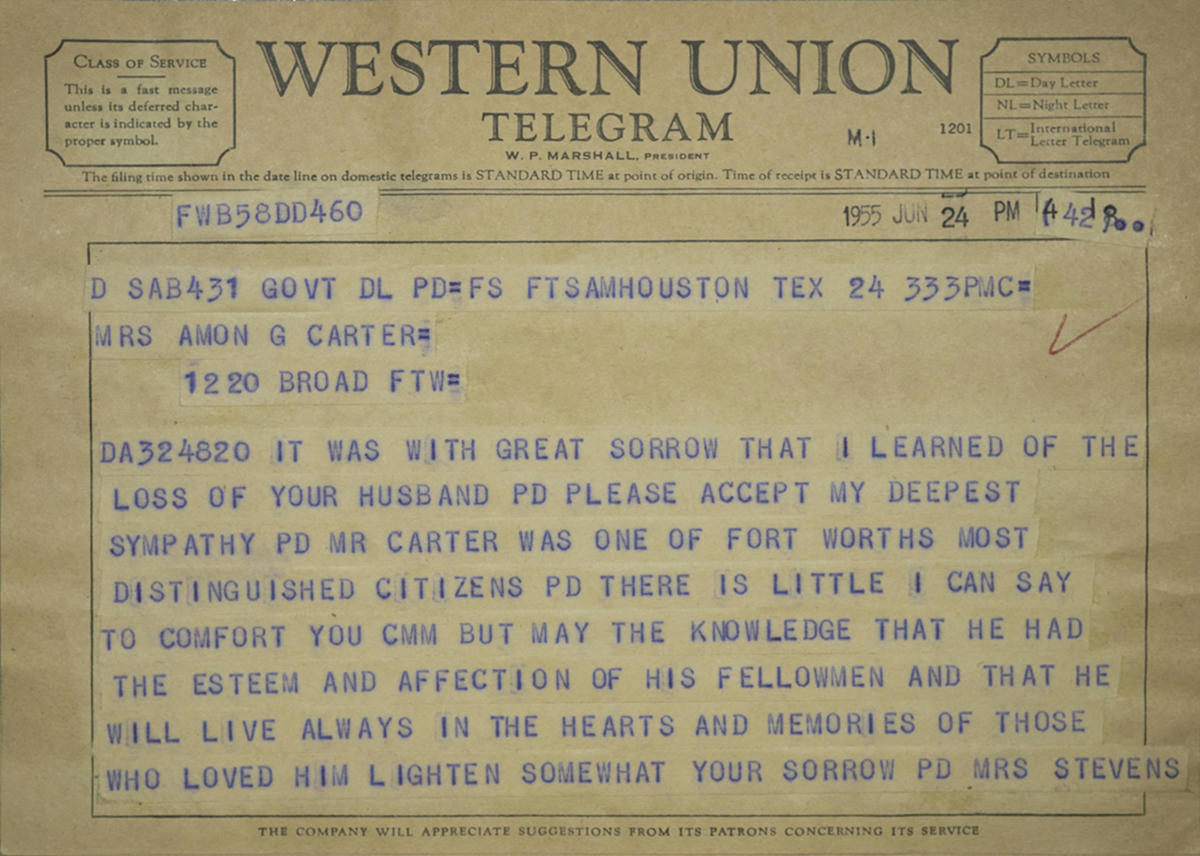 CLASS OF SERVICE
This is a fast message
unless its deferred char-
acter is indicated by the
proper symbol.
WESTERN UNION
TELEGRAM
W. P. MARSHALL, PRESIDENT
M·I
1201
SYMBOLS
DL=Day Letter
NL=Night Letter
LT=International Letter Telegram
The filing time shown in the date line on domestic telegrams is STANDARD TIME at point of origin. Time of receipt is STANDARD TIME at point of destination
FWB58DD460
1955 JUN 24 PM 42
D SAB431 GOVT DL PD=FS FTSAMHOUSTON TEX 24 333PMC=
MRS AMON G CARTER=
1220 BROAD FTW=
DA324820 IT WAS WITH GREAT SORROW THAT I LEARNED OF THE
LOSS OF YOUR HUSBAND PD PLEASE ACCEPT MY DEEPEST
SYMPATHY PD MR CARTER WAS ONE OF FORT WORTHS MOST
DISTINGUISHED CITIZENS PD THERE IS LITTLE I CAN SAY
TO COMFORT YOU CMM BUT MAY THE KNOWLEDGE THAT HE HAD
THE ESTEEM AND AFFECTION OF HIS FELLOWMEN AND THAT HE
WILL LIVE ALWAYS IN THE HEARTS AND MEMORIES OF THOSE
WHO LOVED HIM LIGHTEN SOMEWHAT YOUR SORROW PD MRS STEVENS
THE COMPANY WILL APPRECIATE SUGGESTIONS FROM ITS PATRONS CONCERNING ITS SERVICE